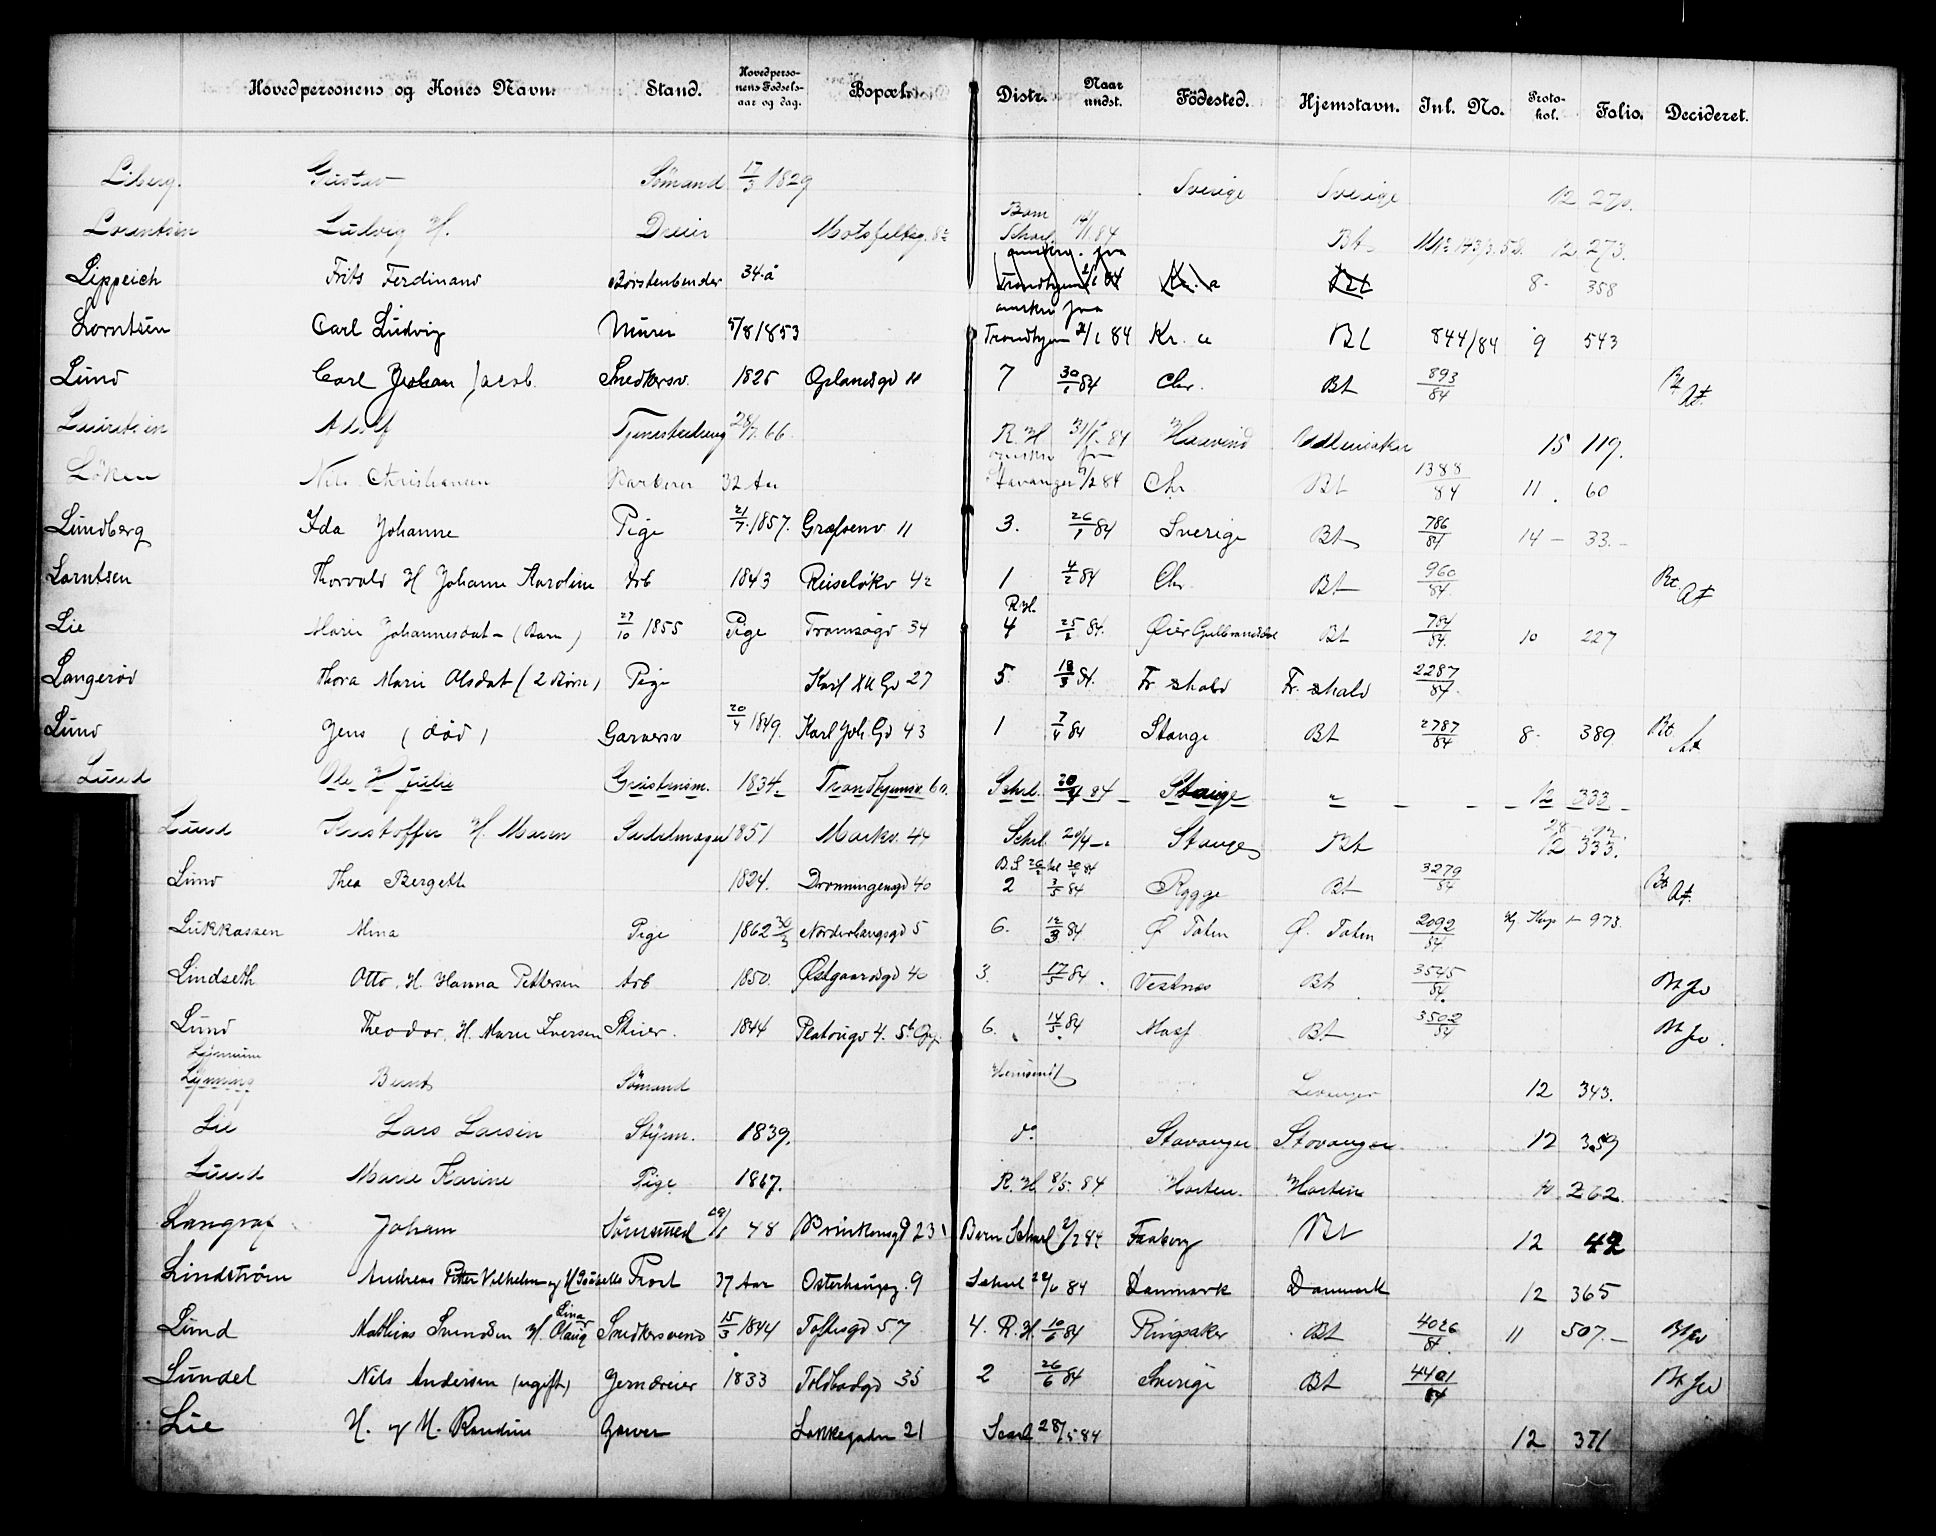 Hovedpersonens og Kones Navn. Stand. Hovedpersonens Fødselsaar og dag. Bopæl. Distr. Naar undst. Födested. Hjemstavn. Inl. No. Protokol. Folio. Decideret.
Liberg. Gustav Sömand 17/3 1829 Sverige Sverige 12 270.
Lorentsen Ludvig H. Dreier Motzfeltsg. Barn Scharl. 14/1 84 Bt 12 273.
Lippeich Frits Ferdinand Börstenbinder 34 å Trondhjem Kr. a Bt 8- 358
Lorntsen Carl Ludvig Murer 5/8 1853 ansker fra Trondhjem 2/1 84 Kr. a Bt 844/84 9 543
Lund Carl Johan Jacob Snedkersv. 1825 Oplandsgd 11 7 30/1 84 Chr. Bt 893/84 Bt At.
Lauritsen Adolf 28/7 66 R. H. 31/1 84 15 119.
Löken Nils Christiansen Barberer 32 Aar Stavanger 9/2 84 Chr Bt 1388/84 11. 60
Lundberg Ida Johanne Pige 21/7 1857. Græfsenv 11 3. 26/1 84 Sverige Bt 786/84 14 - 33.-
Lorntsen Thorvald H Johanne Karoline Arb 1843 Ruseløkv 42 1 4/2 84 Chr. Bt 960/84 Bt At
Lie Marie Johannesdat - (Barn) 27/10 1855 Pige Tromsøgd 34 R.H. 4 25/2 84. Øier Gulbrandsdal Bt 784/84 10 227
Langerød Thora Marie Olsdat (2 Børn) Pige Karl XII Gd 27 5. 18/3 84. Fr. shald Fr. shald 2287/84
Lund Jens (død) Garversv 20/4 1849. Karl Joh. Gd 43 1 7/4 84 Stange Bt 2787/84 8- 389. Bt At
Lund Ole H Julie 1834 Trondhjemsv. 60. Schl. 20/4 84 Stange " 12 333
Lund Kristoffer H. Maren Sadelmager 1851 Markv. 44 Schl. 20/4 - Stange Bt 12 333.
Lund Thea Bergeth 1824. Dronningensgd 40 2 3/5 84 Rygge Bt 3279/84 Bt At.
Lukkassen Mina Pige 1862 30/3 Norderhaugsgd 5 6. 12/3 84 Ø Toten Ø. Toten 2092/84 973.
Lindseth Otto, H. Hanna Pettersen Arb 1850. Østgaardsgd 40 3. 17/5 84. Vestnæs Bt 3545/84. Bt Jo
Lund Theodor, H. Marie Iversen Skiier. 1844 Platousgd 4. 5t Opg. 6. 14/5 84 Moss Bt 3502/84 Bt Jo.
Lysning Bernt Sömand Hemsendt Levanger 12 343.
Lie Lars Larsen Styrm. 1839. do Stavanger Stavanger 12 359
Lund Marie Karine Pige 1867. R. H 8/5. 84 Horten. Horten 10 262
Langraf Johan Sömsmed 29/1 48 Brinkensgd 23 Barn Scharl 2/7 84 Faaborg Bt 12 42
Lindström Andreas Petter Vilhelm og H Isabella Post 37 Aar Osterhausg. 9 Scharl 24/6 84 Danmark Danmark 12 365
Lund Mathias Svendsen H. Lina Olaug Snedkersvend 15/3 1844 Toftesgd 57 4. R.H. 10/6 84 Ringsaker Bt 4026/84 11 507.- Bt Jo
Lundel Nils Andersen (ugift) Jerndreier 1833 Toldbodgd 35 2 26/6 84 Sverige Bt 4401/84 Bt Jo
Lie H. og H. Randine Garver Lakkegaden 21 Scarl 28/5 84 12 371